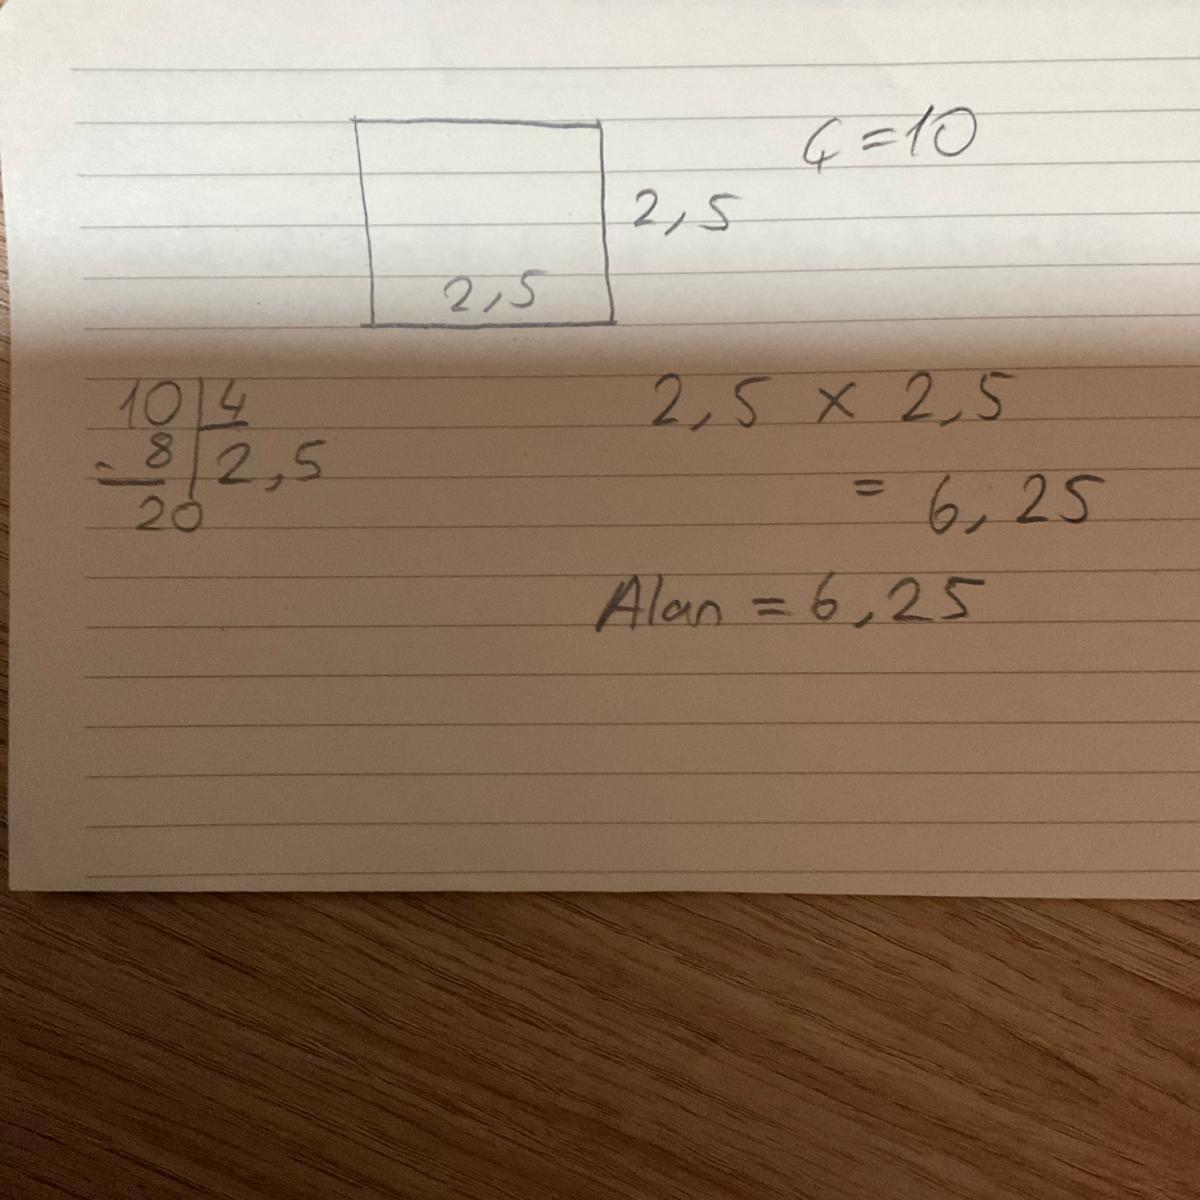 Ç = 10
2,5
2,5
10 | 4
- 8 | 2,5
20
2,5 x 2,5
= 6,25
Alan = 6,25